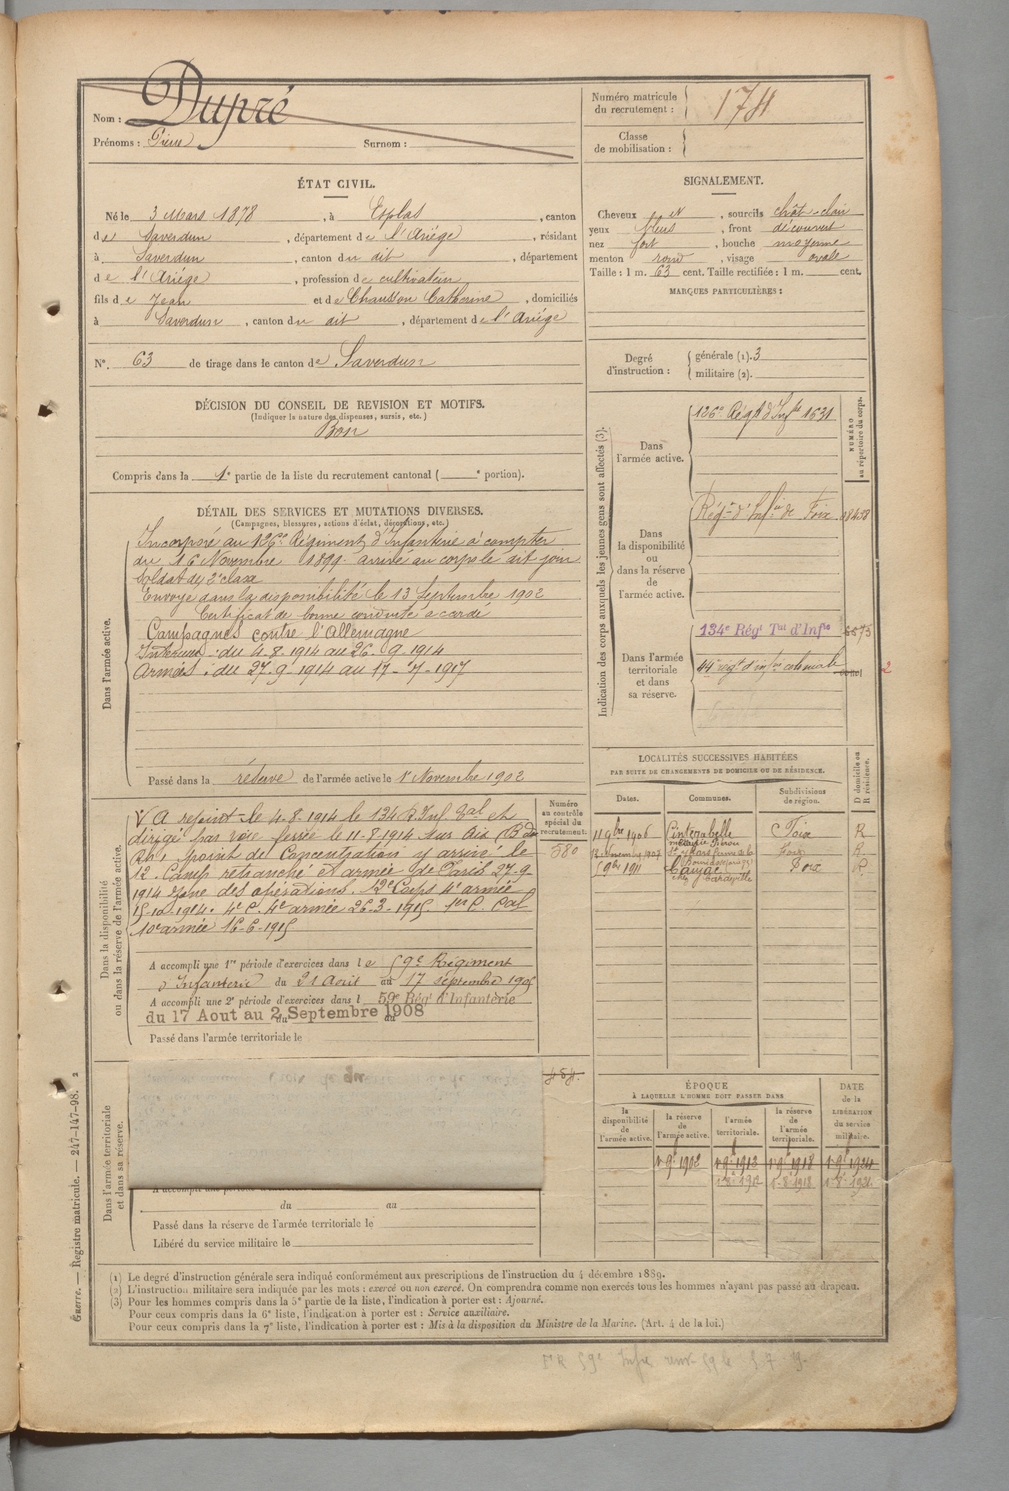 Nom : Dupré
Prénoms : Pierre Surnom :
Numéro matricule du recrutement :
Classe de mobilisation :
ÉTAT CIVIL.
Né le 3 Mars 1878, à Esplas, canton
de Saverdun, département de l'Ariége, résidant
à Saverdun, canton du dit, département
de l'Ariége, profession de cultivateur
fils de Jean et de Chausson Catherine, domiciliés
à Saverdun, canton du dit, département de l'Ariége
N°. 63 de tirage dans le canton de Saverdun
DÉCISION DU CONSEIL DE REVISION ET MOTIFS.
(Indiquer la nature des dispenses, sursis, etc.)
Bon
Compris dans la 1e partie de la liste du recrutement cantonal ( e portion).
SIGNALEMENT.
Cheveux N, sourcils chât-clair
yeux bleus, front découvert
nez fort, bouche moyenne
menton rond, visage ovale
Taille : 1 m. 63 cent. Taille rectifiée : 1 m. cent.
MARQUES PARTICULIÈRES :
Degré d'instruction :
générale (1). 3
militaire (2).
Indication des corps auxquels les jeunes gens sont affectés (3).
NUMÉRO au répertoire du corps.
Dans l'armée active.
126e Régt d'Infie 1631
Dans la disponibilité ou dans la réserve de l'armée active.
Régt d'Infie de Foix
Dans l'armée territoriale et dans sa réserve.
134e Régt Tal d'Infie
44e régt d'infie coloniale
2
DÉTAIL DES SERVICES ET MUTATIONS DIVERSES.
(Campagnes, blessures, actions d'éclat, décorations, etc.)
Dans l'armée active.
Incorporé au 126e Régiment d'Infanterie à compter
du 16 Novembre 1899. arrivé au corps le dit jour
Soldat de 2e classe
Envoyé dans la disponibilité le 13 Septembre 1902
Certificat de bonne conduite accordé
Campagnes contre l'Allemagne
Intérieur : du 4.8.1914 au 26.9.1914
Armées : du 27.9.1914 au 17-7-1917
Passé dans la réserve de l'armée active le 1r Novembre 1902
Dans la disponibilité ou dans la réserve de l'armée active.
Numéro au contrôle spécial du recrutement.
580
A rejoint le 4.8.1914 le 134 R. Inf Tal et
dirigé par voie ferrée le 11-8-1914 sur Aix
point de Concentration y arrivé le
12. Camp retranché et armée de Paris 27.9
1914 Zone des opérations. 12e Corps 4e armée
15-10-1914. 4e C. 4e armée 26.3-1915.
10e armée 16-6-1915
A accompli une 1re période d'exercices dans le 59e Régiment
d'Infanterie du 21 Août au 17 septembre 1905
A accompli une 2e période d'exercices dans l 59e Régt d'Infanterie
du 17 Aout au 2 Septembre 1908
Passé dans l'armée territoriale le
LOCALITÉS SUCCESSIVES HABITÉES
PAR SUITE DE CHANGEMENTS DE DOMICILE OU DE RÉSIDENCE.
Dates. Communes. Subdivisions de région. D domicile ou R résidence.
11 9bre 1906 Cintegabelle Foix R
1907 Foix R
9bre 1911 Foix R
ÉPOQUE
À LAQUELLE L'HOMME DOIT PASSER DANS
la disponibilité de l'armée active. la réserve de l'armée active. l'armée territoriale. la réserve de l'armée territoriale.
DATE de la LIBÉRATION du service militaire.
1r 9bre 1902 1r 9bre 1912 1r 9bre 1918 1r 9bre 1924
1-8-1918
Dans l'armée territoriale et dans sa réserve.
du au
Passé dans la réserve de l'armée territoriale le
Libéré du service militaire le
(1) Le degré d'instruction générale sera indiqué conformément aux prescriptions de l'instruction du 4 décembre 1889.
(2) L'instruction militaire sera indiquée par les mots : exercé ou non exercé. On comprendra comme non exercés tous les hommes n'ayant pas passé au drapeau.
(3) Pour les hommes compris dans la 5e partie de la liste, l'indication à porter est : Ajourné.
Pour ceux compris dans la 6e liste, l'indication à porter est : Service auxiliaire.
Pour ceux compris dans la 7e liste, l'indication à porter est : Mis à la disposition du Ministre de la Marine. (Art. 4 de la loi.)
Guerre. — Registre matricule. — 247-147-98. 2